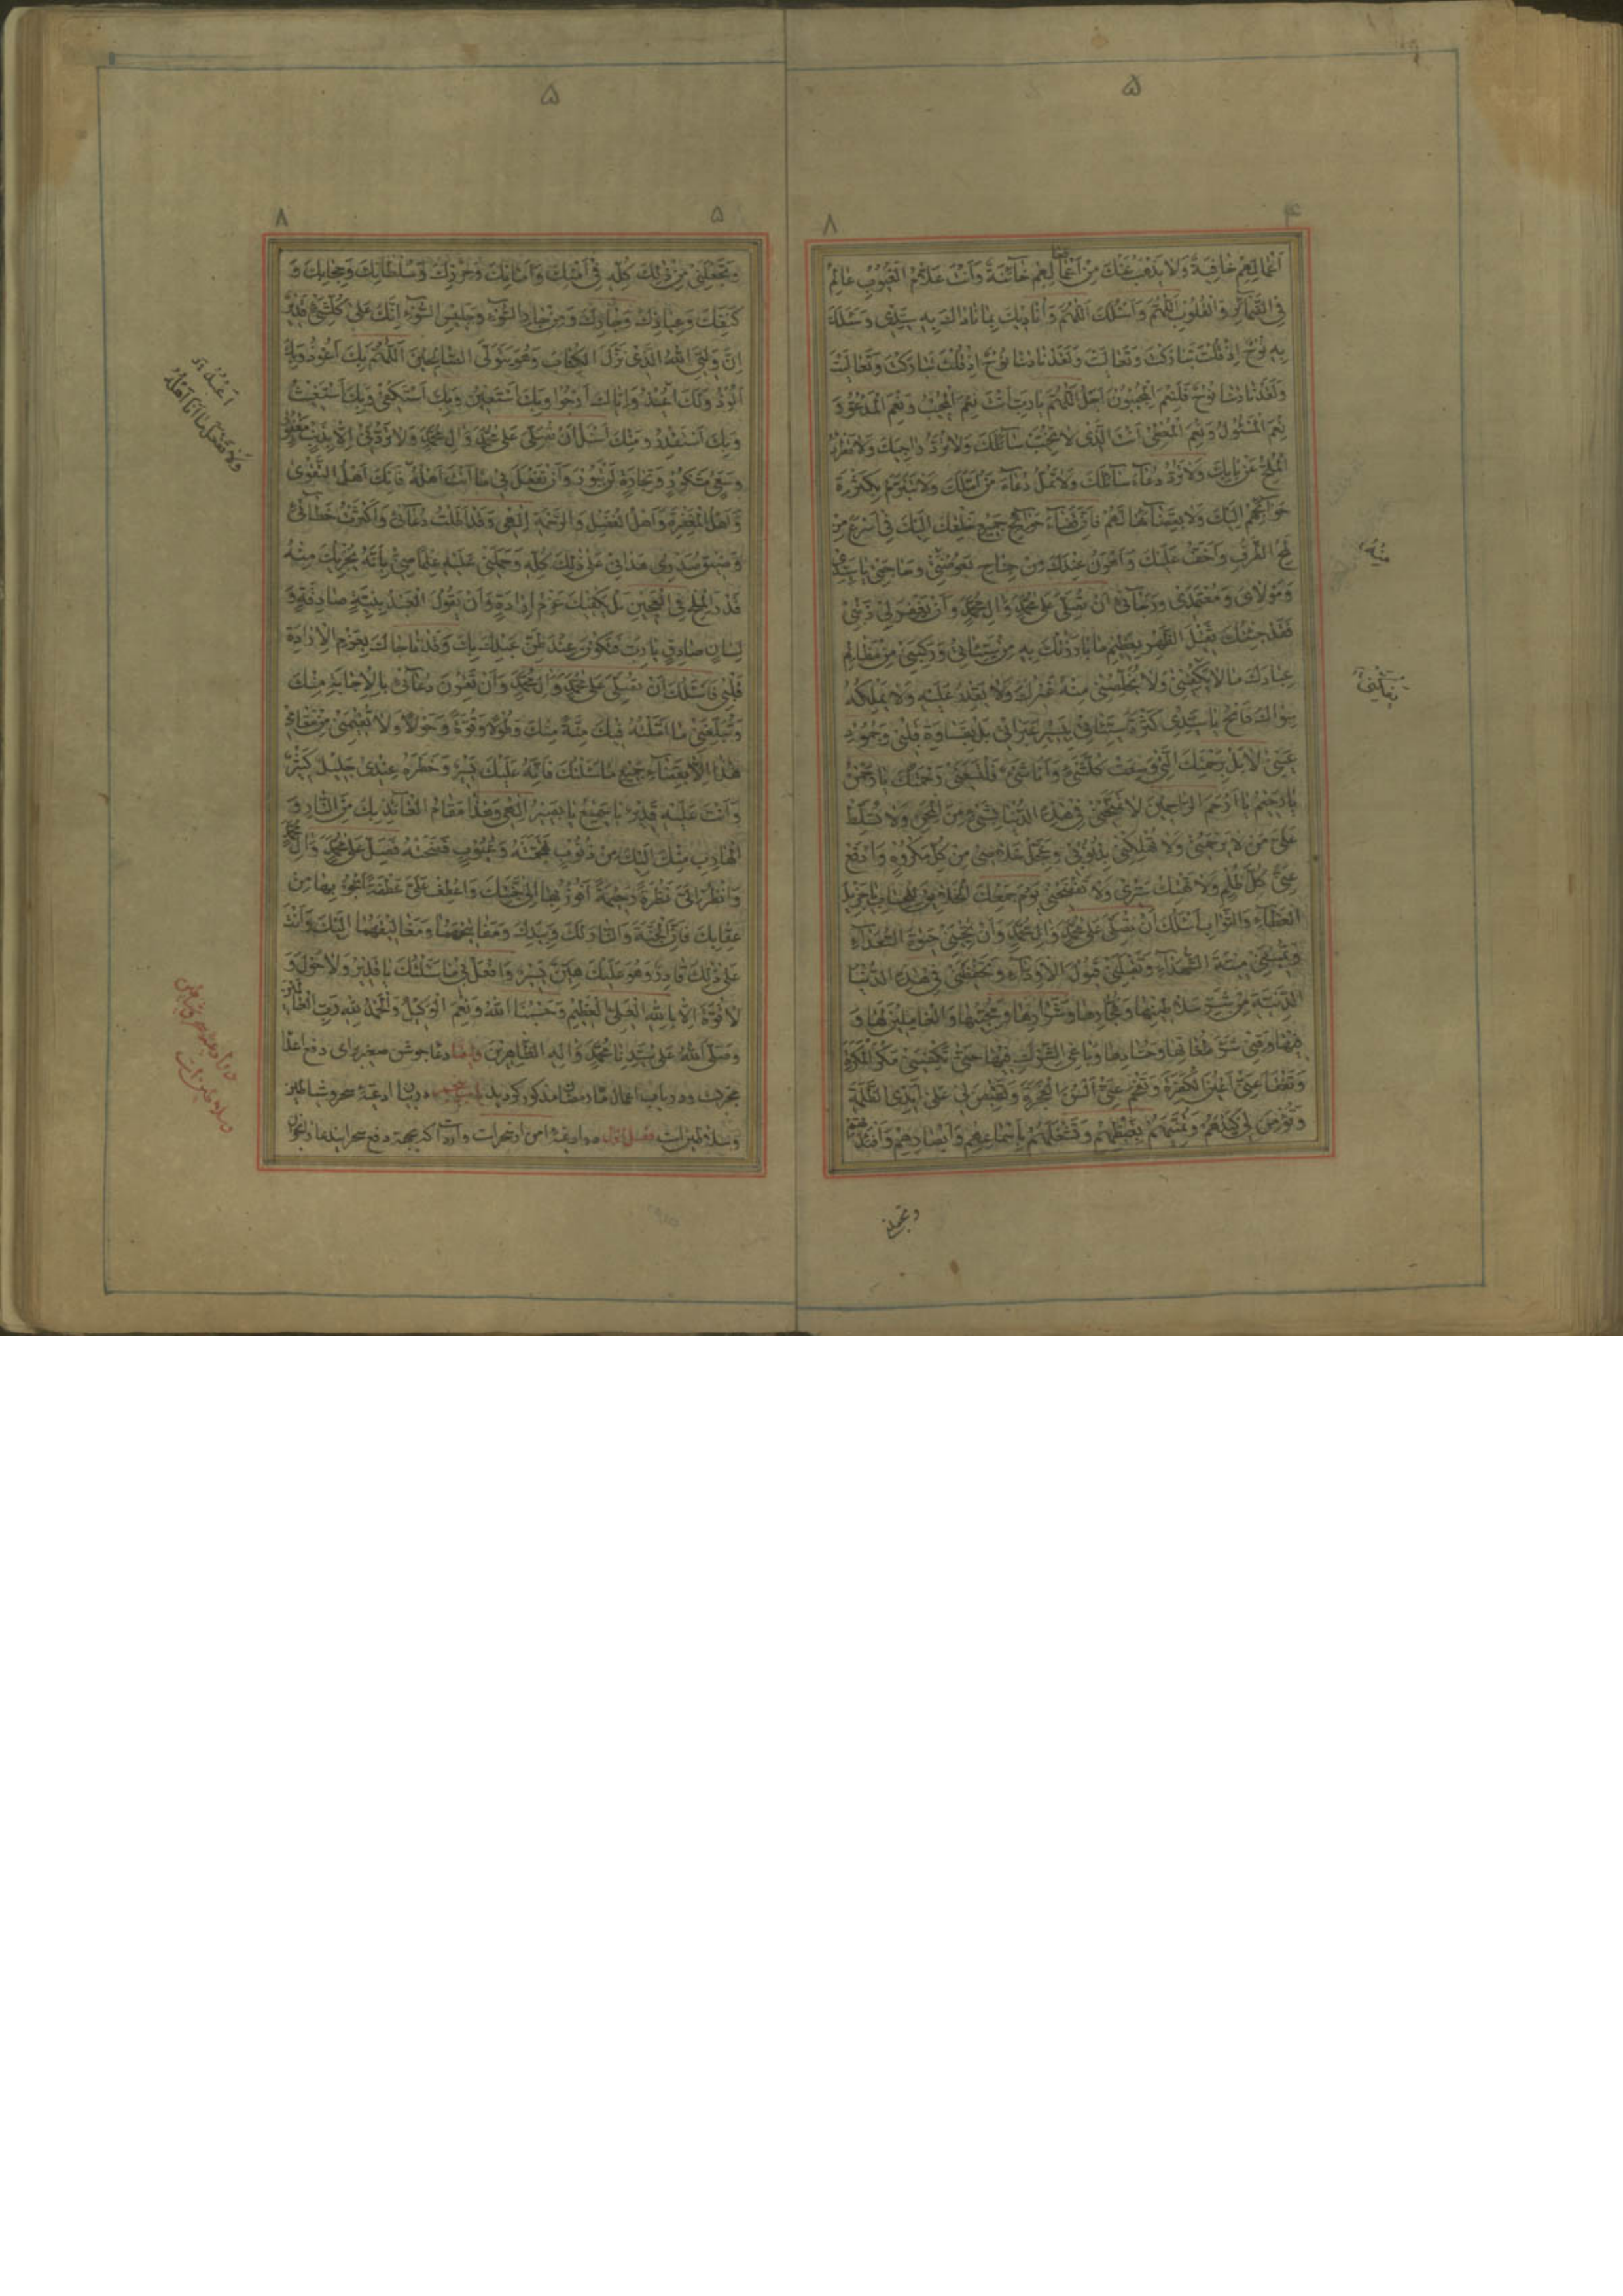 ۵
۸ ۴
اَعْمالِهِمْ خافِيَةٌ وَلا يَذْهَبُ عَنْكَ مِنْ اَعْمالِهِمْ خآئِنَةٌ وَاَنْتَ عَلّامُ الْغُيُوبِ عالِمٌ
فِى الضَّمآئِرِ وَالْقُلُوبِ اَللّهُمَّ وَاَسْئَلُكَ اَللّهُمَّ وَاُناديكَ بِما ناداكَ بِهِ سَيِّدى وَسَئَلَكَ
بِهِ نُوحٌ اِذْ قُلْتَ تَبارَكْتَ وَتَعالَيْتَ وَلَقَدْ نادينا نُوحٌ اِذْ قُلْتَ تَبارَكْتَ وَتَعالَيْتَ
وَلَقَدْ نادينا نُوحٌ فَلَنِعْمَ الْمُجيبُونَ اَجَلْ اَللّهُمَّ يا رَبِّ اَنْتَ نِعْمَ الْمُجيبُ وَنِعْمَ الْمَدْعُوُّ وَ
نِعْمَ الْمَسْئُولُ وَنِعْمَ الْمُعْطى اَنْتَ الَّذى لا تُخَيِّبُ سآئِلَكَ وَلا تَرُدُّ راجِيَكَ وَلا تَطْرُدُ
الْمُلِحَّ عَنْ بابِكَ وَلا تَرُدُّ دُعآءَ سآئِلِكَ وَلا تَمَلُّ دُعآءَ مَنْ اَمَّلَكَ وَلا تَتَبَرَّمُ بِكَثْرَةِ
حَوآئِجِهِمْ اِلَيْكَ وَلا بِقَضآئِها لَهُمْ فَاِنَّ قَضآءَ حَوآئِجِ جَميعِ خَلْقِكَ اِلَيْكَ فى اَسْرَعِ مِنْ
لَمْحِ الطَّرْفِ وَاَخَفُّ عَلَيْكَ وَاَهْوَنُ عِنْدَكَ مِنْ جَناحِ بَعُوضَةٍ وَحاجَتى يا سَيِّدى
وَمَوْلاىَ وَمُعْتَمَدى وَرَجآئى اَنْ تُصَلِّىَ عَلى مُحَمَّدٍ وَآلِ مُحَمَّدٍ وَاَنْ تَغْفِرَ لى ذَنْبى
فَقَدْ جِئْتُكَ ثَقيلَ الظَّهْرِ بِعَظيمِ ما بارَزْتُكَ بِهِ مِنْ سَيِّئاتى وَرَكِبَنى مِنْ مَظالِمِ
عِبادِكَ ما لا يَكْفينى وَلا يُخَلِّصُنى مِنْهُ غَيْرُكَ وَلا يَقْدِرُ عَلَيْهِ وَلا يَمْلِكُهُ
سِواكَ فَامْحُ يا سَيِّدى كَثْرَةَ سَيِّئاتى بِيَسيرِ عَبَراتى بَلْ بِقَساوَةِ قَلْبى وَجُمُودِ
عَيْنى لا بَلْ بِرَحْمَتِكَ الَّتى وَسِعَتْ كُلَّ شَىْءٍ وَاَنَا شَىْءٌ فَلْتَسَعْنى رَحْمَتُكَ يا رَحْمنُ
يا رَحيمُ يا اَرْحَمَ الرّاحِمينَ لا تَمْتَحِنّى فى هذِهِ الدُّنْيا بِشَىْءٍ مِنَ الْمِحَنِ وَلا تُسَلِّطْ
عَلَىَّ مَنْ لا يَرْحَمُنى وَلا تُهْلِكْنى بِذُنُوبى وَعَجِّلْ خَلاصى مِنْ كُلِّ مَكْرُوهٍ وَادْفَعْ
عَنّى كُلَّ ظُلْمٍ وَلا تَهْتِكْ سَتْرى وَلا تَفْضَحْنى يَوْمَ جَمْعِكَ الْخَلائِقَ لِلْحِسابِ يا جَزيلَ
الْعَطآءِ وَالثَّوابِ اَسْئَلُكَ اَنْ تُصَلِّىَ عَلى مُحَمَّدٍ وَآلِ مُحَمَّدٍ وَاَنْ تُحْيِيَنى حَيوةَ السُّعَدآءِ
وَتُميتَنى ميتَةَ الشُّهَدآءِ وَتَقْبَلَنى قَبُولَ الْاَوِدّآءِ وَتَحْفَظَنى فى هذِهِ الدُّنْيَا
الدَّنِيَّةِ مِنْ شَرِّ سَلاطينِها وَفُجّارِها وَشِرارِها وَمُحِبّيها وَالْعامِلينَ لَها وَ
فيها وَقِنى شَرَّ طُغاتِها وَحُسّادِها وَباغِى الشِّرْكِ فيها حَتّى تَكْفِيَنى مَكْرَ الْمَكَرَةِ
وَتَفْقَأَ عَنّى اَعْيُنَ الْكَفَرَةِ وَتُفْحِمَ عَنّى اَلْسُنَ الْفَجَرَةِ وَتَقْبِضَ لى عَلى اَيْدِى الظَّلَمَةِ
وَتُوهِنَ لى كَيْدَهُمْ وَتُميتَهُمْ بِغَيْظِهِمْ وَتَشْغَلَهُمْ بِاَسْماعِهِمْ وَاَبْصارِهِمْ وَاَفْئِدَتِهِمْ
مِنْهُ
وتجعلنى
۵
۸ ۵
وَتَجْعَلَنى مِنْ ذلِكَ كُلِّهِ فى اَمْنِكَ وَاَمانِكَ وَحِرْزِكَ وَسُلْطانِكَ وَحِجابِكَ وَ
كَنَفِكَ وَعِياذِكَ وَجارِكَ وَمِنْ جارِ السُّوٓءِ وَجَليسِ السُّوٓءِ اِنَّكَ عَلى كُلِّ شَىْءٍ قَديرٌ
اِنَّ وَلِيِّىَ اللهُ الَّذى نَزَّلَ الْكِتابَ وَهُوَ يَتَوَلَّى الصّالِحينَ اَللّهُمَّ بِكَ اَعُوذُ وَبِكَ
اَلُوذُ وَلَكَ اَعْبُدُ وَاِيّاكَ اَرْجُوا وَبِكَ اَسْتَعينُ وَبِكَ اَسْتَكْفى وَبِكَ اَسْتَغيثُ
وَبِكَ اَسْتَنْقِذُ وَمِنْكَ اَسْئَلُ اَنْ تُصَلِّىَ عَلى مُحَمَّدٍ وَآلِ مُحَمَّدٍ وَلا تَرُدَّنى اِلّا بِذَنْبٍ مَغْفُورٍ
وَسَعْىٍ مَشْكُورٍ وَتِجارَةٍ لَنْ تَبُورَ وَاَنْ تَفْعَلَ بى ما اَنْتَ اَهْلُهُ فَاِنَّكَ اَهْلُ التَّقْوى
وَاَهْلُ الْمَغْفِرَةِ وَاَهْلُ الْفَضْلِ وَالرَّحْمَةِ اِلهى وَقَدْ اَطَلْتُ دُعآئى وَاَكْثَرْتُ خِطابى
وَضيقُ صَدْرى حَدانى عَلى ذلِكَ كُلِّهِ وَحَمَلَنى عَلَيْهِ عِلْمًا مِنّى بِاَنَّهُ يُجْزيكَ مِنْهُ
قَدْرُ الْمِلْحِ فِى الْعَجينِ بَلْ يَكْفيكَ عَزْمُ اِرادَةٍ وَاَنْ يَقُولَ الْعَبْدُ بِنِيَّةٍ صادِقَةٍ وَ
لِسانٍ صادِقٍ يا رَبِّ فَتَكُونَ عِنْدَ ظَنِّ عَبْدِكَ بِكَ وَقَدْ ناجاكَ بِعَزْمِ الْاِرادَةِ
قَلْبى فَاَسْئَلُكَ اَنْ تُصَلِّىَ عَلى مُحَمَّدٍ وَآلِ مُحَمَّدٍ وَاَنْ تَقْرُنَ دُعآئى بِالْاِجابَةِ مِنْكَ
وَتُبَلِّغَنى ما اَمَّلْتُهُ فيكَ مِنَّةً مِنْكَ وَطَوْلًا وَقُوَّةً وَحَوْلًا وَلا تُقيمَنى مِنْ مَقامى
هذا اِلّا بِقَضآءِ جَميعِ ما سَئَلْتُكَ فَاِنَّهُ عَلَيْكَ يَسيرٌ وَخَطَرُهُ عِنْدى جَليلٌ كَثيرٌ
وَاَنْتَ عَلَيْهِ قَديرٌ يا سَميعُ يا بَصيرُ اِلهى وَهذا مَقامُ الْعآئِذِ بِكَ مِنَ النّارِ وَ
الْهارِبِ مِنْكَ اِلَيْكَ مِنْ ذُنُوبٍ تَهَجَّمَتْهُ وَعُيُوبٍ فَضَحَتْهُ فَصَلِّ عَلى مُحَمَّدٍ وَآلِ مُحَمَّدٍ
وَانْظُرْ اِلَىَّ نَظْرَةً رَحيمَةً اَفُوزُ بِها اِلى جَنَّتِكَ وَاعْطِفْ عَلَىَّ عَطْفَةً اَنْجُو بِها مِنْ
عِقابِكَ فَاِنَّ الْجَنَّةَ وَالنّارَ لَكَ وَبِيَدِكَ وَمَفاتيحَهُما وَمَغاليقَهُما اِلَيْكَ وَاَنْتَ
عَلى ذلِكَ قادِرٌ وَهُوَ عَلَيْكَ هَيِّنٌ يَسيرٌ وَافْعَلْ بى ما سَئَلْتُكَ يا قَديرُ وَلا حَوْلَ وَ
لا قُوَّةَ اِلّا بِاللهِ الْعَلِىِّ الْعَظيمِ وَحَسْبُنَا اللهُ وَنِعْمَ الْوَكيلُ وَالْحَمْدُ للهِ رَبِّ الْعالَمينَ
وَصَلَّى اللهُ عَلى سَيِّدِنا مُحَمَّدٍ وَآلِهِ الطّاهِرينَ وايضا دعا جوشن صغير براى دفع اعدا
مجربست ودر باب اعمال ماه رمضان مذكور كرديد در بيان ادعيه سحر وشياطين
فصل اول
وَلا تَفْعَلْ ما اَنَا اَهْلُهُ